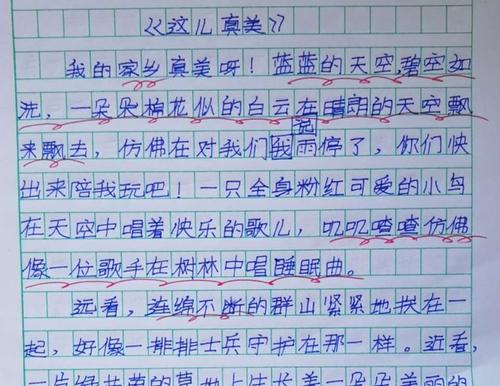 《这儿真美》
我的家乡真美呀！蓝蓝的天空,碧空如
洗，一朵朵棉花似的白云在晴朗的天空飘
说
来飘去，仿佛在对我们我雨停了，你们快
出来陪我玩吧！一只全身粉红可爱的小鸟
在天空中唱着快乐的歌儿，叽叽喳喳仿佛
像一位歌手在树林中唱睡眠曲。
远看，连绵不断的群山紧紧地挨在一
起，好像一排排士兵守护在那一样。近看，